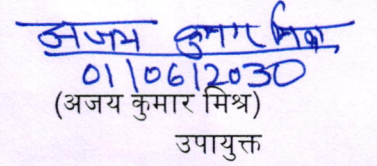 अजय कुमार मिश्र
01/06/2030
(अजय कुमार मिश्र)
उपायुक्त